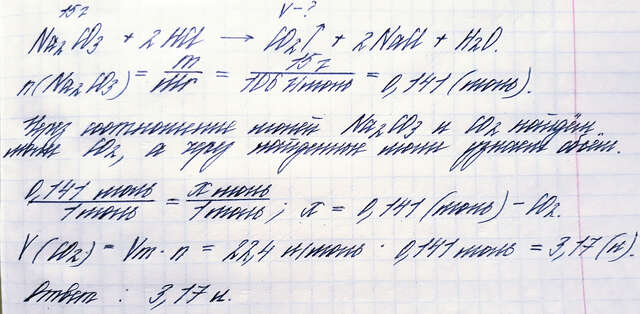 15г V-?
Na₂CO₃ + 2HCl → CO₂↑ + 2NaCl + H₂O.
n(Na₂CO₃) = m/Mr = 15г/106 г/моль = 0,141 (моль).
Через соотношение молей Na₂CO₃ и CO₂ найдём
моли CO₂, а через найденные моли узнаем объём.
0,141 моль/1 моль = x моль/1 моль; x = 0,141 (моль) - CO₂.
V(CO₂) = Vm · n = 22,4 л/моль · 0,141 моль = 3,17 (л).
Ответ : 3,17 л.